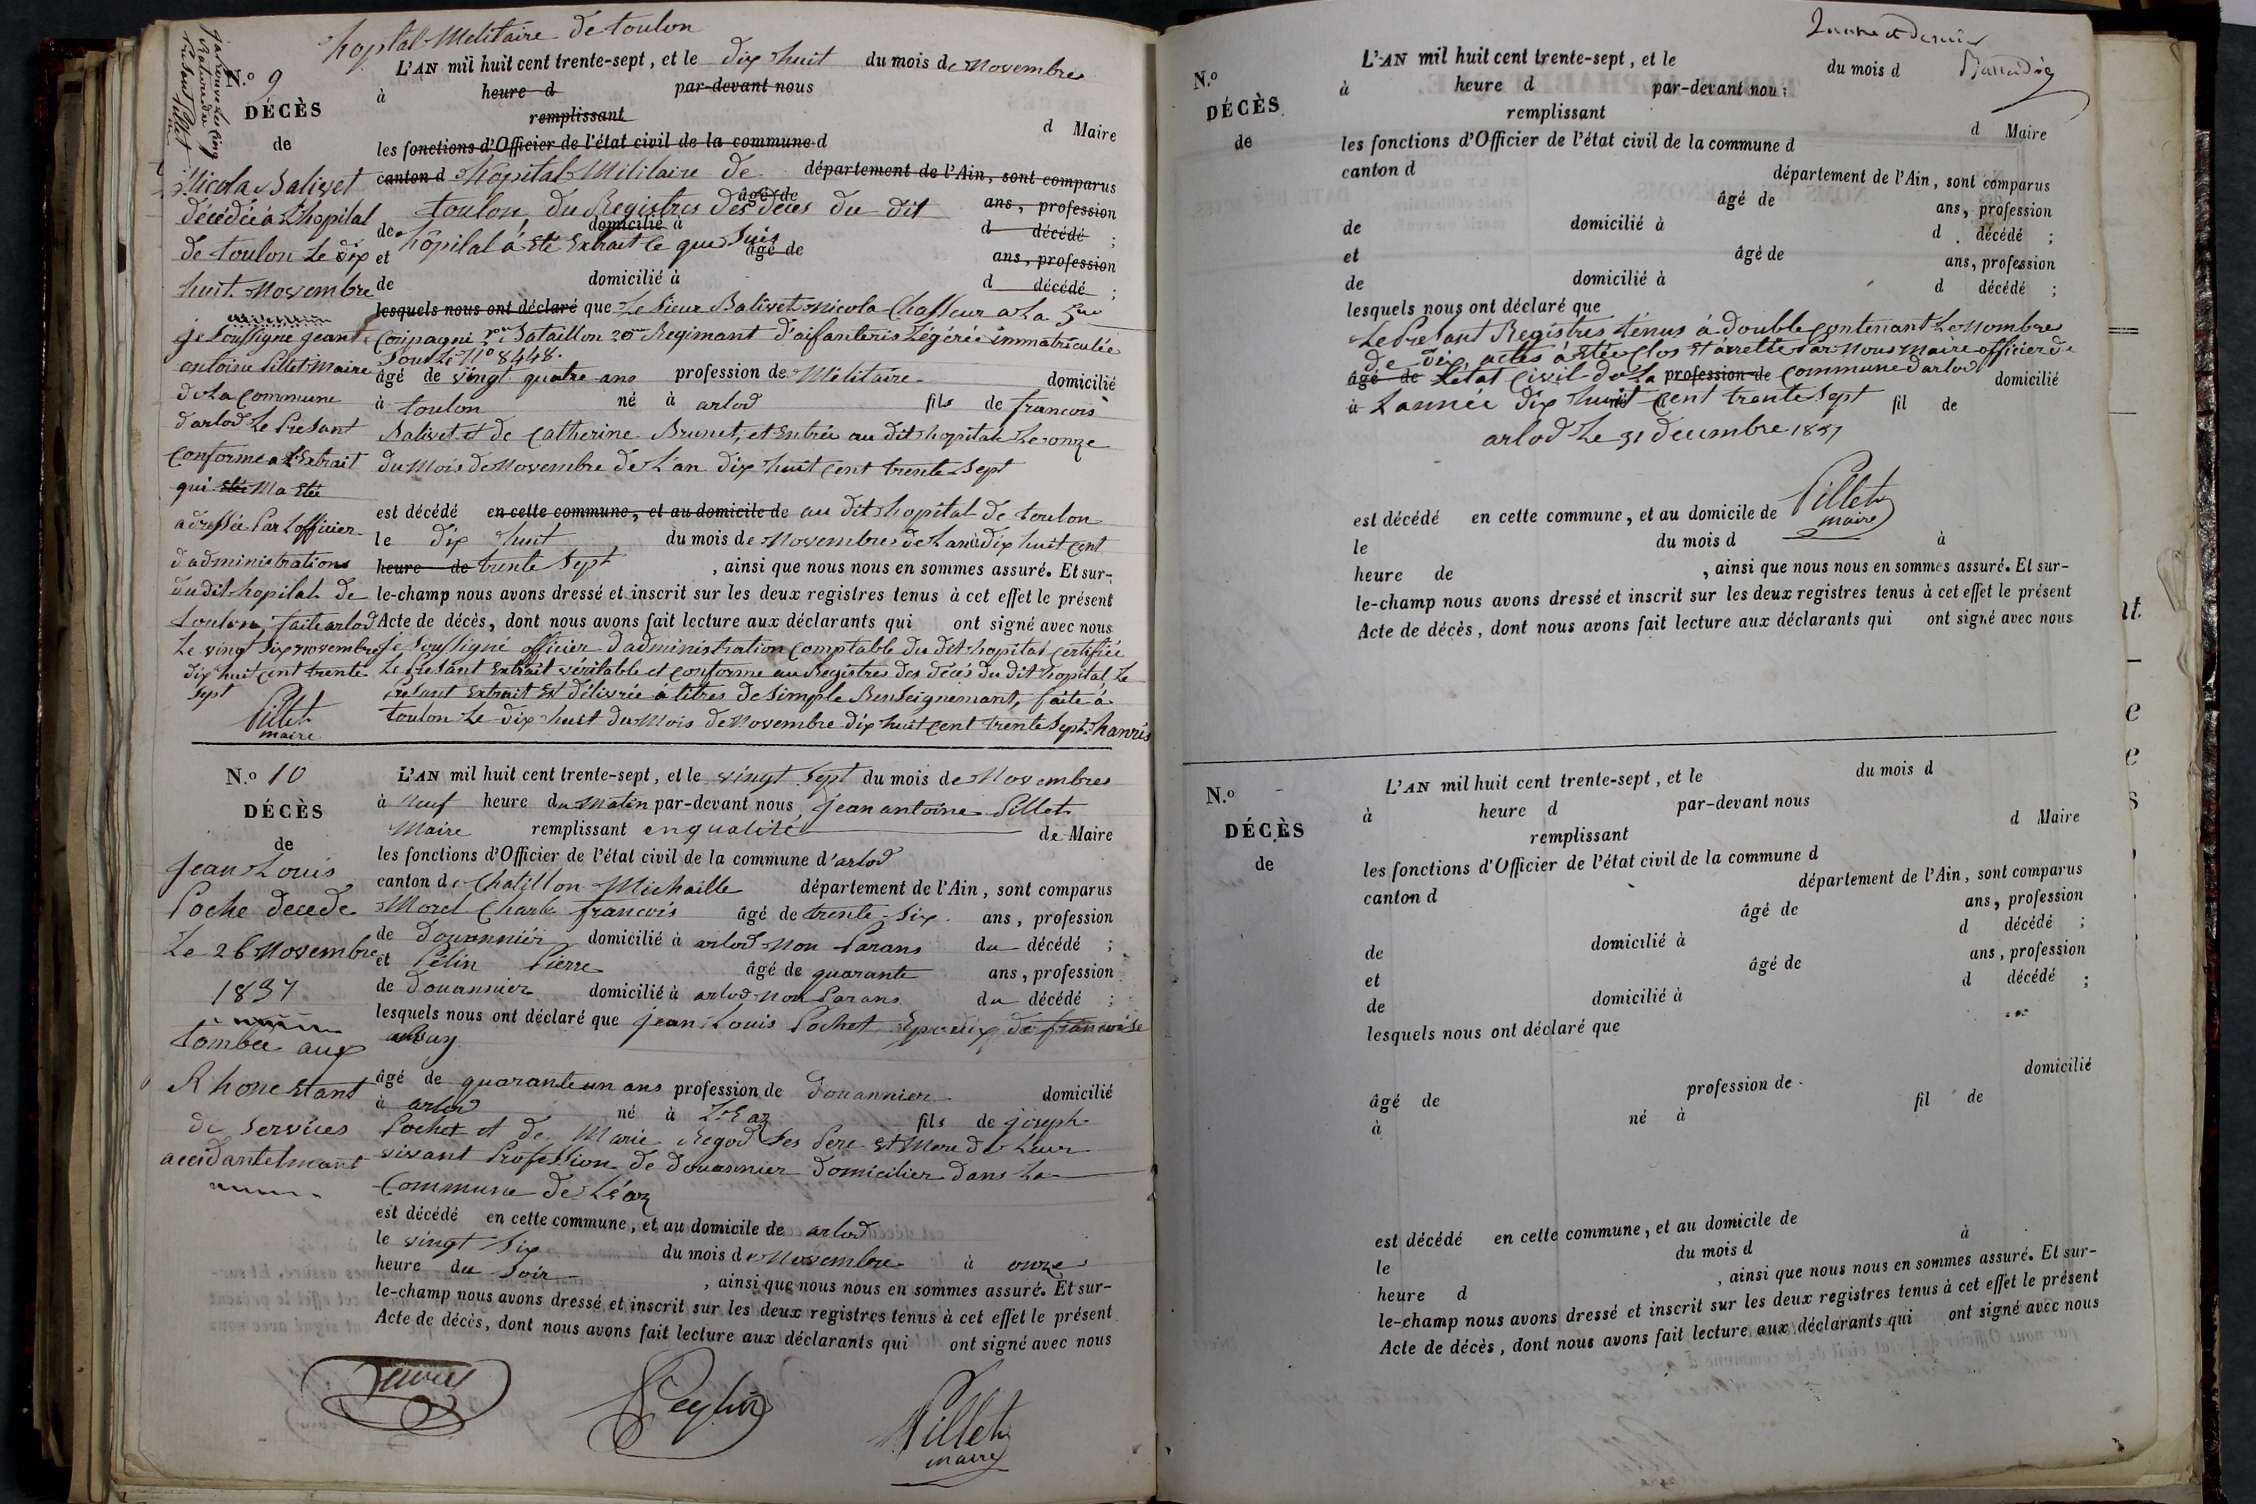 hopital Melitaire de toulon
N.o 9
DÉCÈS
de
Nicola Balivet
décédée à L'hopital
de toulon Le dix
huit Novembre
je soussigné jeant
entoine Pillet Maire
de La Commune
d'arlod Le Presant
Conforme a L'Extrait
qui Etée Ma Etée
adressée Par Lofficier
d'administrations
du dit hopital de
toulon faite arlod
Le vingt six novembre
dix huit cent trente
sept
Pillet
maire
L'AN mil huit cent trente-sept, et le dix huit du mois de Novembres
à heure d par-devant nous
remplissant d Maire
les fonctions d'Officier de l'état civil de la commune d
canton d hopital Militaire de département de l'Ain, sont comparus
toulon, du Registres des deces du dit âgé de ans, profession
de hôpital à Eté Extrait Ce que Suis domicilié à d décédé ;
et âgé de ans, profession
de domicilié à d décédé ;
lesquels nous ont déclaré que Le Sieur Balivet Nicola Chasseur a La 5me
Compagnie 1er Bataillon 20me Regimant d'aifanteris Légérée immatriculée
Sous Le No 8448.
âgé de vingt quatre ans profession de Militaire domicilié
à toulon né à arlod fils de francois
Balivet et de Catherine Brunet, et Entrée au dit hopital Le onze
du Mois de Novembre de L'an dix huit cent trente Sept
est décédé en cette commune, et au domicile de au dit hopital de toulon
le dix huit du mois de Novembres de Lan dix huit cent
heure de trente Sept , ainsi que nous nous en sommes assuré. Et sur-
le-champ nous avons dressé et inscrit sur les deux registres tenus à cet effet le présent
Acte de décès, dont nous avons fait lecture aux déclarants qui ont signé avec nous
je Soussigné officier d'administration comptable du dit hopital certifiée
Le Presant Extrait véritable et conforme au Registres des décés du dit hopital, Le
Présent Extrait Est délivrée à titres de simple Renseignemant, faite à
toulon Le dix huit du Mois de Novembre dix huit cent trente Sept.
N.o 10
DÉCÈS
de
jean Louis
Poche decede
Le 26 Novembre
1837
tombée aux
Rhone Etant
de Services
accidantelmant
L'AN mil huit cent trente-sept, et le vingt Sept du mois de Novembres
à Neuf heure du Matin par-devant nous jean antoine Pillet
Maire remplissant en qualité de Maire
les fonctions d'Officier de l'état civil de la commune d'arlod
canton de Chatillon Michaille département de l'Ain, sont comparus
Morel Charle francois âgé de trente-Six ans, profession
de douannier domicilié à arlod Non Parans du décédé ;
et Pélin Pierre âgé de quarante ans, profession
de douannier domicilié à arlod Non Parans du décédé ;
lesquels nous ont déclaré que jean Louis Pochet Epoux de francoise
âgé de quarante un ans profession de douannier domicilié
à arlod né à Léaz fils de joseph
Pochet et de Marie Regod Ses Pere Et Mere de Leur
vivant Profession de douannier domicilier dans La
Commune de Léaz
est décédé en cette commune, et au domicile de arlod
le vingt Six du mois de Novembre à onze
heure du Soir , ainsi que nous nous en sommes assuré. Et sur-
le-champ nous avons dressé et inscrit sur les deux registres tenus à cet effet le présent
Acte de décès, dont nous avons fait lecture aux déclarants qui ont signé avec nous
Peylin
Pillet
maire
N.o
DÉCÈS
de
L'AN mil huit cent trente-sept, et le du mois d
à heure d par-devant nous
remplissant d Maire
les fonctions d'Officier de l'état civil de la commune d
canton d département de l'Ain, sont comparus
âgé de ans, profession
de domicilié à d décédé ;
et âgé de ans, profession
de domicilié à d décédé ;
lesquels nous ont déclaré que
Le Presant Registres tenus à double contenant Le Nombre
de dix actes à Etée Clos et arretté Par Nous Maire officier de
âgé de L'état Civil de La profession de Commune d'arlod domicilié
à L'année dix huit Cent trente Sept fil de
arlod Le 31 decembre 1837
Pillet
maire
est décédé en cette commune, et au domicile de
le du mois d à
heure de , ainsi que nous nous en sommes assuré. Et sur-
le-champ nous avons dressé et inscrit sur les deux registres tenus à cet effet le présent
Acte de décès, dont nous avons fait lecture aux déclarants qui ont signé avec nous
N.o
DÉCÈS
de
L'AN mil huit cent trente-sept, et le du mois d
à heure d par-devant nous
remplissant d Maire
les fonctions d'Officier de l'état civil de la commune d
canton d département de l'Ain, sont comparus
âgé de ans, profession
de domicilié à d décédé ;
et âgé de ans, profession
de domicilié à d décédé ;
lesquels nous ont déclaré que
âgé de profession de domicilié
à né à fil de
est décédé en cette commune, et au domicile de
le du mois d à
heure d , ainsi que nous nous en sommes assuré. Et sur-
le-champ nous avons dressé et inscrit sur les deux registres tenus à cet effet le présent
Acte de décès, dont nous avons fait lecture aux déclarants qui ont signé avec nous